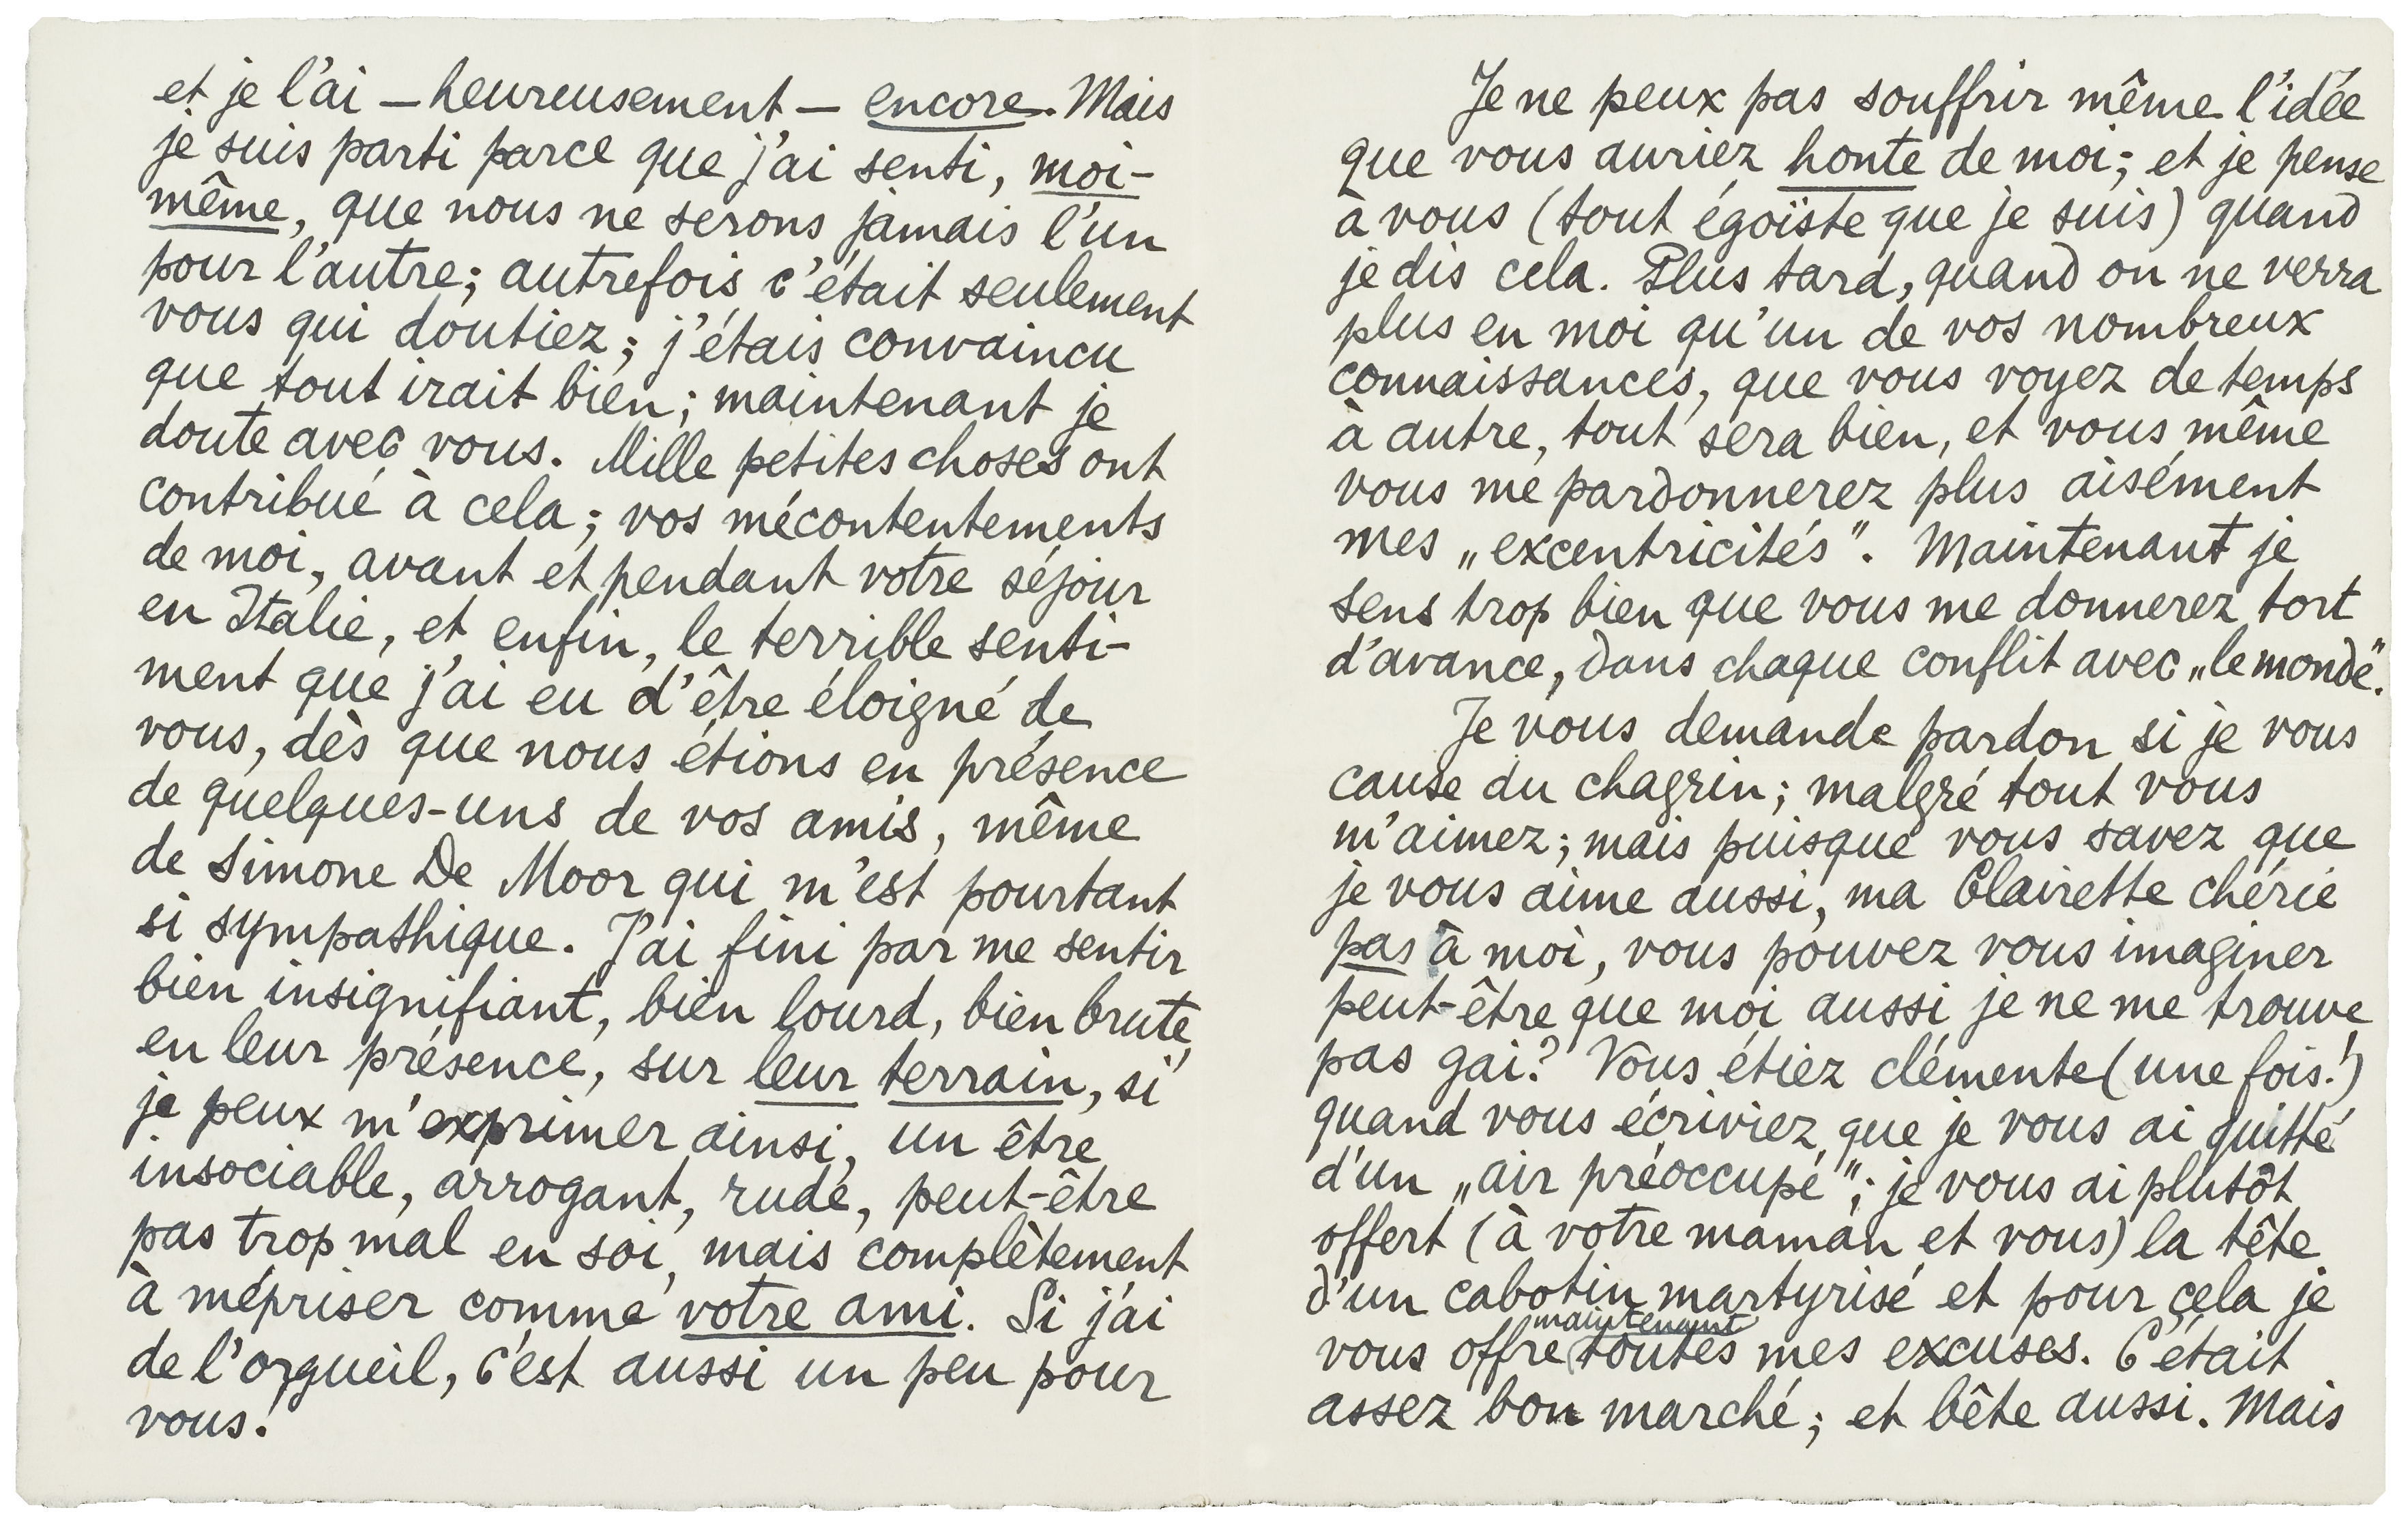 et je l'ai — heureusement — encore. Mais
je suis parti parce que j'ai senti, moi-
même, que nous ne serons jamais l'un
pour l'autre; autrefois c'était seulement
vous qui doutiez; j'étais convaincu
que tout irait bien; maintenant je
doute avec vous. Mille petites choses ont
contribué à cela; vos mécontentements
de moi, avant et pendant votre séjour
en Italie, et enfin, le terrible senti-
ment que j'ai eu d'être éloigné de
vous, dès que nous étions en présence
de quelques-uns de vos amis, même
de Simone De Moor qui m'est pourtant
si sympathique. J'ai fini par me sentir
bien insignifiant, bien lourd, bien brute,
en leur présence, sur leur terrain, si
je peux m'exprimer ainsi, un être
insociable, arrogant, rude, peut-être
pas trop mal en soi, mais complètement
à mépriser comme votre ami. Si j'ai
de l'orgueil, c'est aussi un peu pour
vous!
Je ne peux pas souffrir même l'idée
que vous auriez honte de moi; et je pense
à vous (tout égoïste que je suis) quand
je dis cela. Plus tard, quand on ne verra
plus en moi qu'un de vos nombreux
connaissances, que vous voyez de temps
à autre, tout sera bien, et vous même
vous me pardonnerez plus aisément
mes „excentricités". Maintenant je
sens trop bien que vous me donnerez tort
d'avance, dans chaque conflit avec „le monde".
Je vous demande pardon si je vous
cause du chagrin; malgré tout vous
m'aimez; mais puisque vous savez que
je vous aime aussi, ma Clairette chérie
pas à moi, vous pouvez vous imaginer
peut-être que moi aussi je ne me trouve
pas gai? Vous étiez clémente (une fois!)
quand vous écriviez que je vous ai quitté
d'un „air préoccupé"; je vous ai plutôt
offert (à votre maman et vous) la tête
d'un cabotin martyrisé et pour cela je
maintenant
vous offre toutes mes excuses. C'était
assez bon marché; et bête aussi. Mais